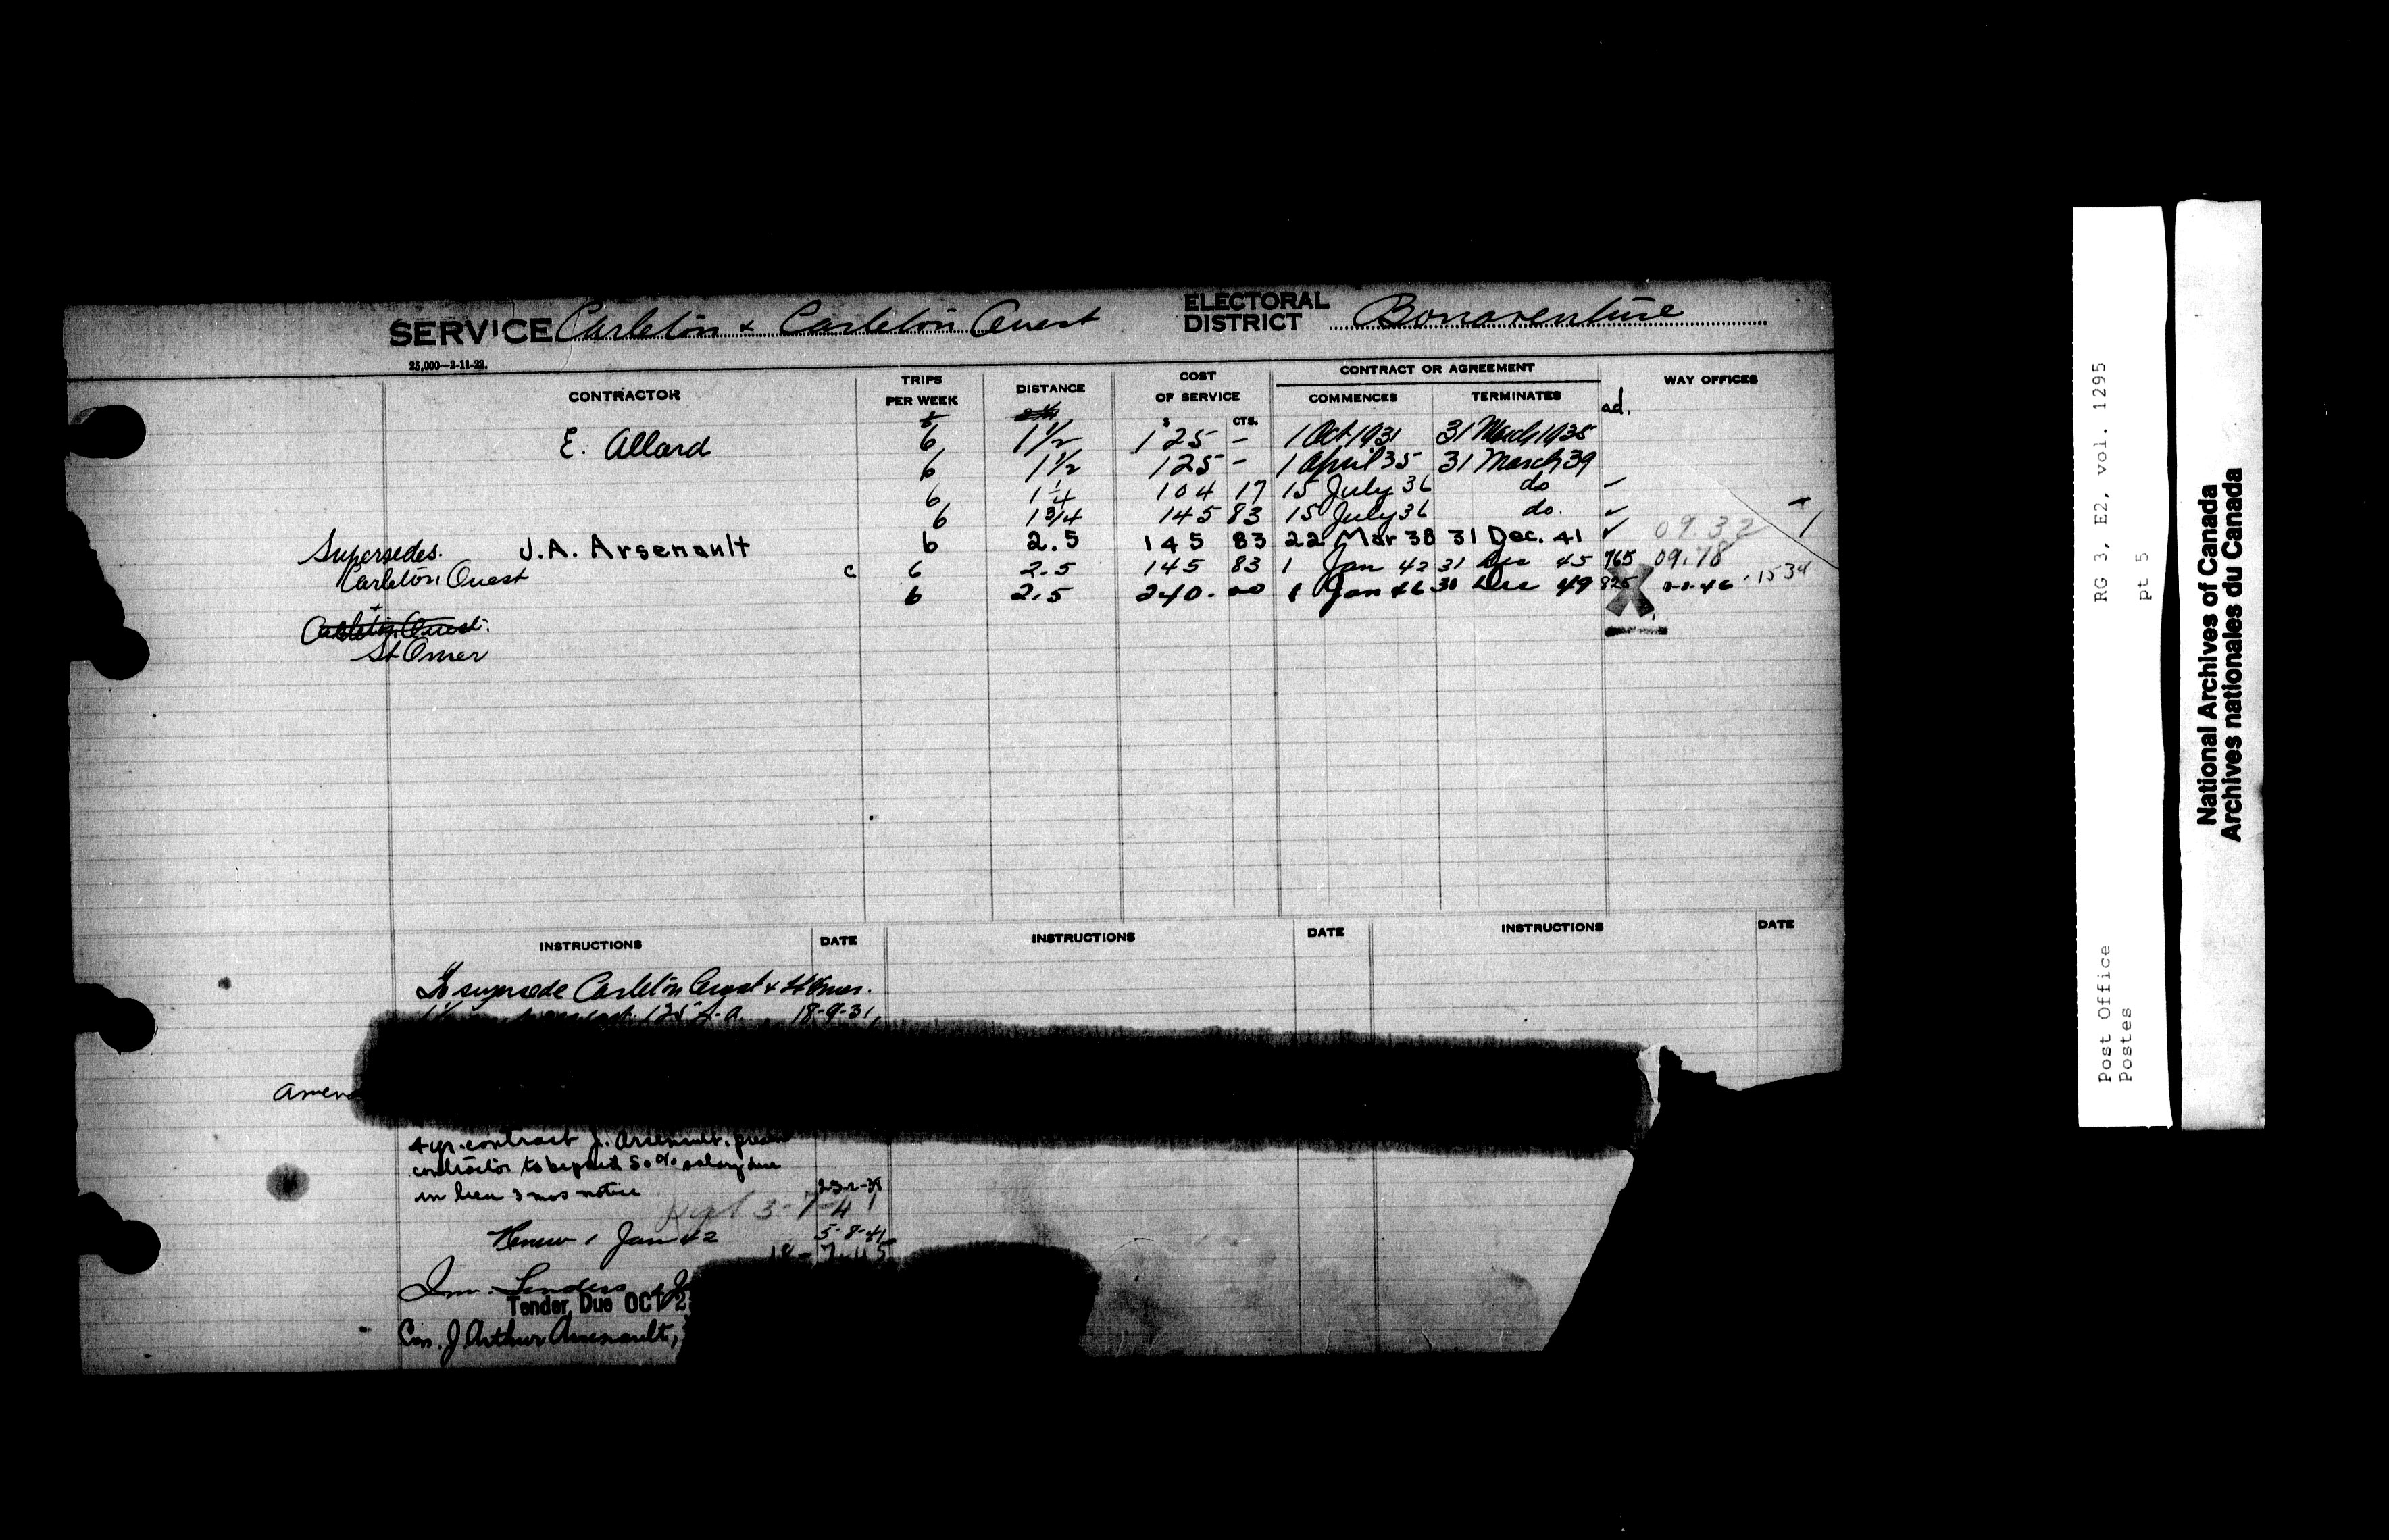 SERVICE Carleton & Carleton Ouest ELECTORAL DISTRICT Bonaventure
25,000—2-11-22.
CONTRACTOR TRIPS PER WEEK DISTANCE COST OF SERVICE CONTRACT OR AGREEMENT WAY OFFICES
$ CTS. COMMENCES TERMINATES ad.
E. Allard 6 1 1/2 125 – 1 Oct 1931 31 March 1935
6 1 1/2 125 – 1 April 35 31 March 39
6 1 1/4 104 17 15 July 36 do ✓
6 1 3/4 145 83 15 July 36 do. ✓
Supersedes. J.A. Arsenault 6 2.5 145 83 22 Mar 38 31 Dec. 41 ✓ 09.32
Carleton Ouest c 6 2.5 145 83 1 Jan 42 31 Dec 45 765 09.78
6 2.5 240. 00 1 Jan 46 30 Dec 49 825 1534
+
Carleton Ouest.
St Omer
INSTRUCTIONS DATE INSTRUCTIONS DATE INSTRUCTIONS DATE
To supersede Carleton Ouest & St Omer.
125 18-9-31
Amend
4 yr. contract J. Arsenault.
contractor to be paid 50% salary due
in lieu 3 mos notice
3-7-41
Renew 1 Jan 42 5-8-41
Inv. Tenders
Tender Due OCT 2
Con. J. Arthur Arsenault,
RG 3, E2, vol. 1295
pt 5
Post Office
Postes
National Archives of Canada
Archives nationales du Canada